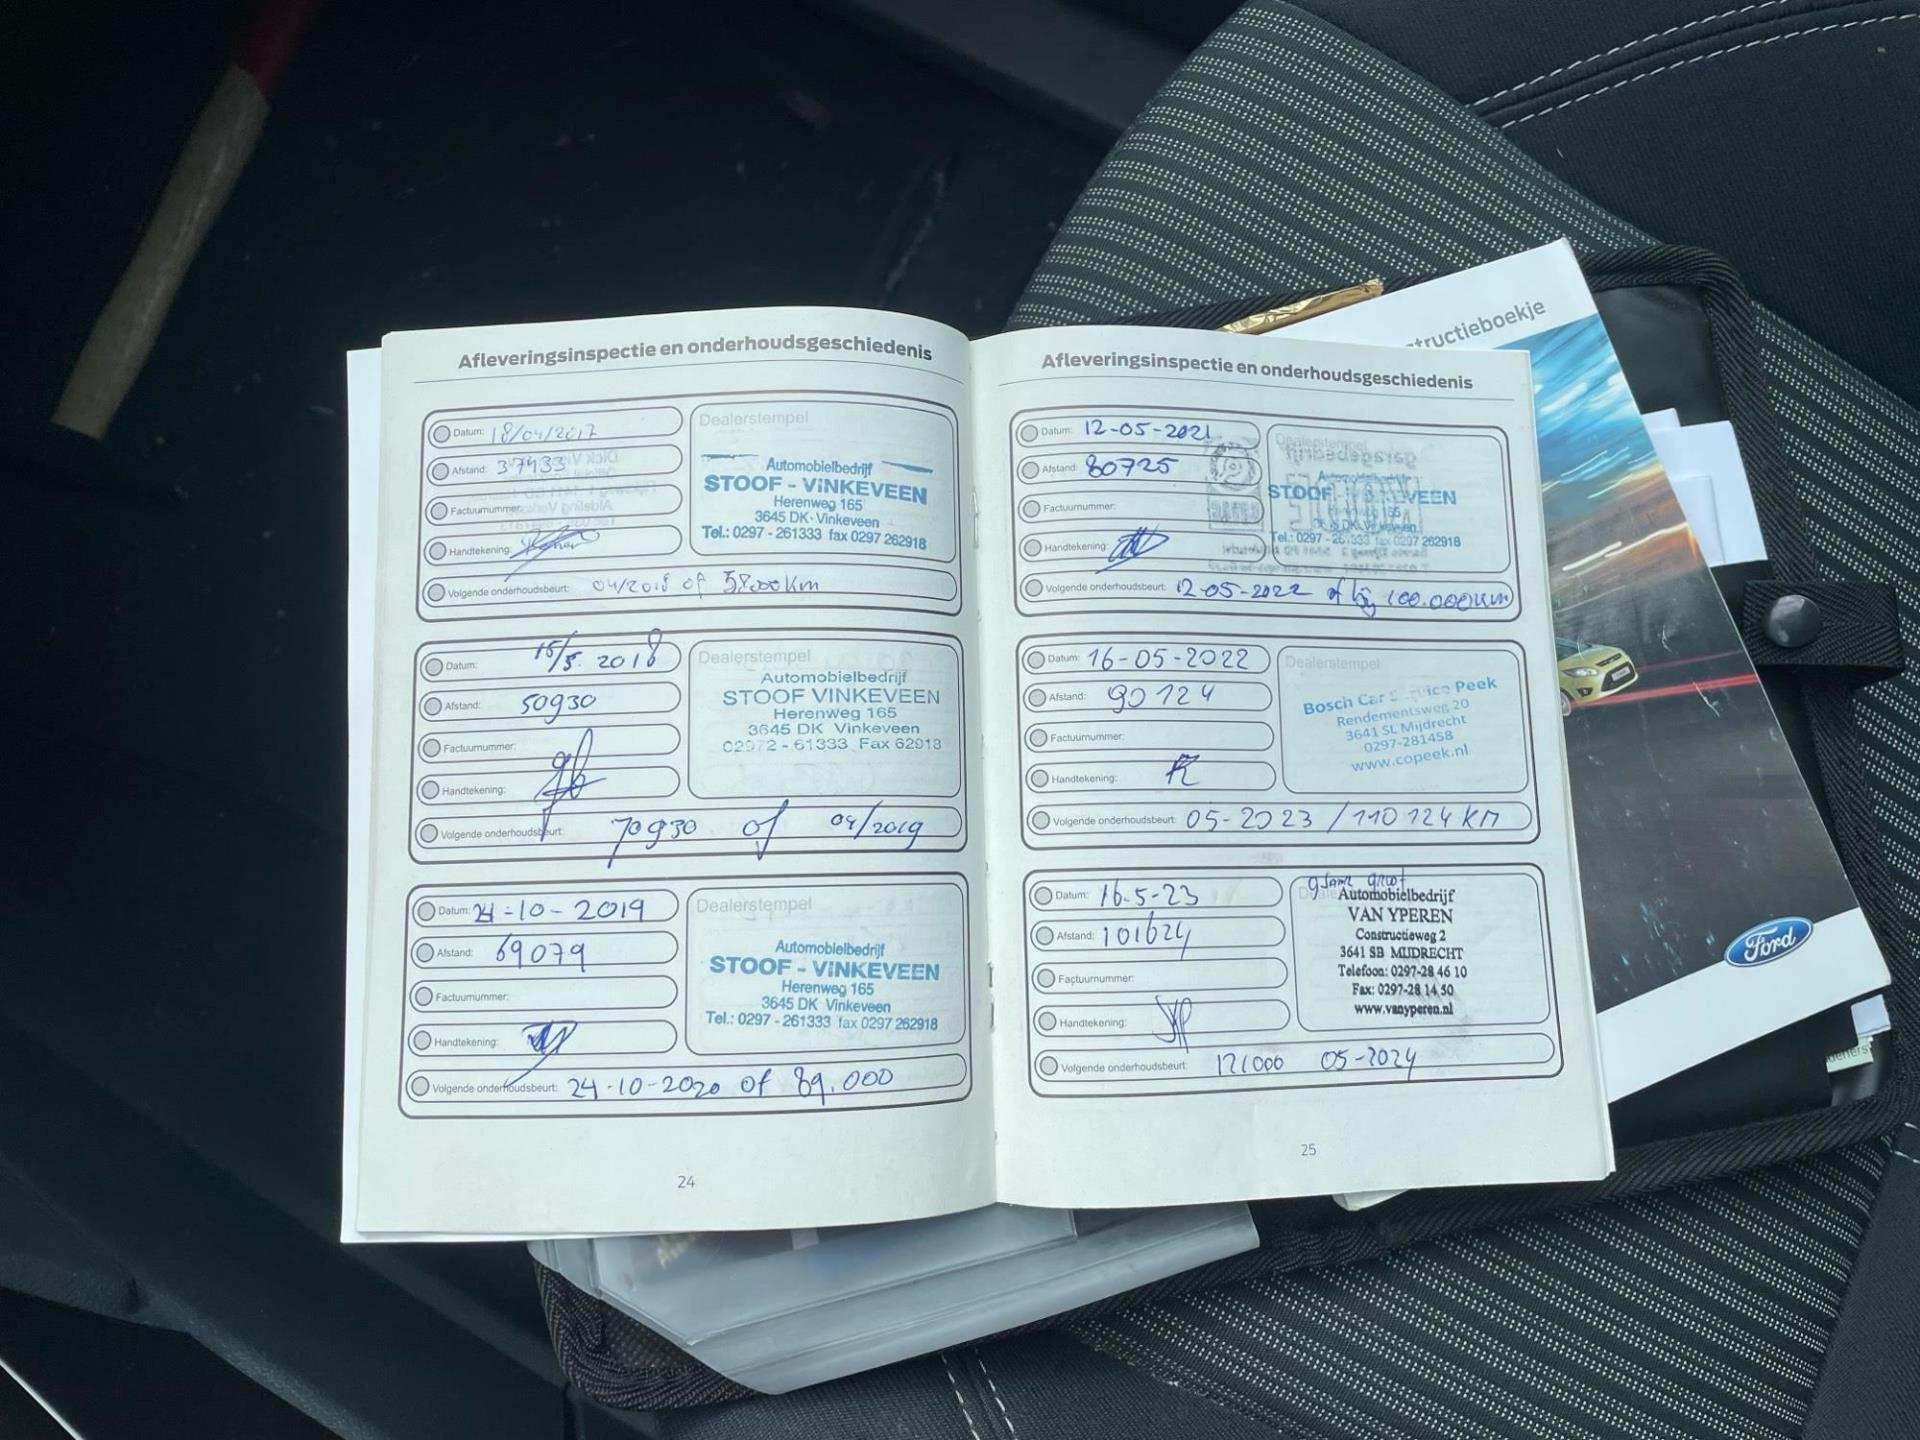 Afleveringsinspectie en onderhoudsgeschiedenis
Datum: 18/04/2017
Afstand: 37433
Factuurnummer:
Handtekening:
Volgende onderhoudsbeurt: 04/2018 of 58.000 km
Dealerstempel
Automobielbedrijf
STOOF - VINKEVEEN
Herenweg 165
3645 DK Vinkeveen
Tel.: 0297 - 261333 fax 0297 262918
Datum: 15/5. 2018
Afstand: 50930
Factuurnummer:
Handtekening:
Volgende onderhoudsbeurt: 70930 of 04/2019
Dealerstempel
Automobielbedrijf
STOOF VINKEVEEN
Herenweg 165
3645 DK Vinkeveen
02972 - 61333 Fax 62918
Datum: 24-10-2019
Afstand: 69079
Factuurnummer:
Handtekening:
Volgende onderhoudsbeurt: 24-10-2020 of 89.000
Dealerstempel
Automobielbedrijf
STOOF - VINKEVEEN
Herenweg 165
3645 DK Vinkeveen
Tel.: 0297 - 261333 fax 0297 262918
24
Afleveringsinspectie en onderhoudsgeschiedenis
Datum: 12-05-2021
Afstand: 80725
Factuurnummer:
Handtekening:
Volgende onderhoudsbeurt: 12-05-2022 of bij 100.000km
Dealerstempel
Automobielbedrijf
STOOF - VINKEVEEN
Herenweg 165
3645 DK Vinkeveen
Tel.: 0297 - 261333 fax 0297 262918
Datum: 16-05-2022
Afstand: 90124
Factuurnummer:
Handtekening:
Volgende onderhoudsbeurt: 05-2023 / 110124 KM
Dealerstempel
Bosch Car Service Peek
Rendementsweg 20
3641 SL Mijdrecht
0297-281458
www.copeek.nl
Datum: 16-5-23
Afstand: 101624
Factuurnummer:
Handtekening:
Volgende onderhoudsbeurt: 121000 05-2024
groot
Automobielbedrijf
VAN YPEREN
Constructieweg 2
3641 SB MIJDRECHT
Telefoon: 0297-28 46 10
Fax: 0297-28 14 50
www.vanyperen.nl
25
structieboekje
Ford